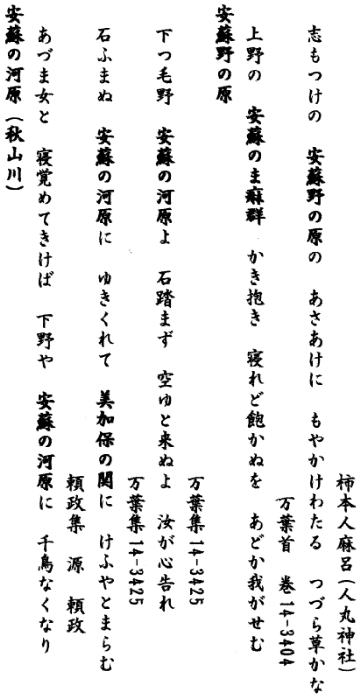 柿本人麻呂(人丸神社)
志もつけの 安蘇野の原の あさあけに もやかけわたる つづら草かな
万葉首 巻14-3404
上野の 安蘇のま麻群 かき抱き 寝れど飽かぬを あどか我がせむ
安蘇野の原
万葉集14-3425
下つ毛野 安蘇の河原よ 石踏まず 空ゆと来ぬよ 汝が心告れ
万葉集14-3425
石ふまぬ 安蘇の河原に ゆきくれて 美加保の関に けふやとまらむ
頼政集 源 頼政
あづま女と 寝覚めてきけば 下野や 安蘇の河原に 千鳥なくなり
安蘇の河原(秋山川)